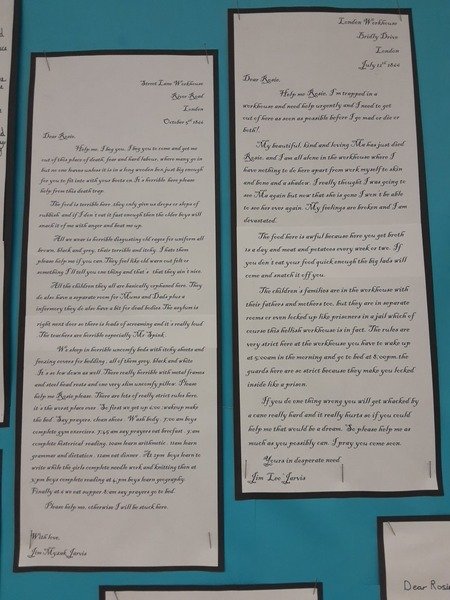 Street Lane Workhouse
River Road
London
October 5th 1844
Dear Rosie,
Help me, I beg you, I beg you to come and get me
out of this place of death, fear and hard labour, where many go in
but no one leaves unless it is in a hog wooden box just big enough
for you to fit into with your boots on. It s horrible here please
help from this death trap.
The food is terrible here, they only give us drops or slops of
rubbish and if I don t eat it fast enough then the older boys will
snatch it of me with anger and beat me up.
All we wear is horrible disgusting old rages for uniform all
brown, black and grey, their terrible and itchy. I hate them
please help me if you can. They feel like old warn out felt or
something I ll tell you one thing and that s that they ain t nice.
All the children they all are basically orphaned here. They
do also have a separate room for Mums and Dads plus a
infirmery they do also have a bit for dead bodies. The asylum is
right next door so there is loads of screaming and it s really loud.
The teachers are horrible especially Mr Spink.
We sleep in horrible uncomfy beds with itchy sheets and
freezing covers for bedding, all of them grey, black and white.
It s so low down as well. There really horrible with metal frames
and steel head rests and one very slim uncomfy pillow. Please
help me Rosie please. There are lots of really strict rules here,
it s the worst place ever. So first we get up 6:00: wakeup make
the bed. Say prayers, clean shoes. Wash body. 7:00 am boys
complete gym exercises. 7:45 am say prayers eat breakfast. 9 am
complete historical reading. 10am learn arithmetic. 11am learn
grammar and dictation. 12am eat dinner. At 2pm boys learn to
write while the girls complete needle work and knitting then at
3 pm boys complete reading at 4 pm boys learn geography.
Finally at 6 we eat supper 8:am say prayers go to bed.
Please help me, otherwise I will be stuck here.
With love,
Jim Jarvis
London Workhouse
Bridly Drive
London
July 12th 1844
Dear Rosie,
Help me Rosie, I'm trapped in a
workhouse and need help urgently and I need to get
out of here as soon as possible before I go mad or die or
both!.
My beautiful, kind and loving Ma has just died
Rosie, and I am all alone in the workhouse where I
have nothing to do here apart from work myself to skin
and bone and a shadow. I really thought I was going to
see Ma again but now that she is gone I won t be able
to see her ever again. My feelings are broken and I am
devastated.
The food here is awful because here you get broth
is a day and meat and potatoes every week or two. If
you don t eat your food quick enough the big lads will
come and snatch it off you.
The children s families are in the workhouse with
their fathers and mothers too, but they are in separate
rooms or even locked up like prisoners in a jail which of
course this hellish workhouse is in fact. The rules are
very strict here at the workhouse you have to wake up
at 5:00am in the morning and go to bed at 8:00pm, the
guards here are so strict because they make you locked
inside like a prison.
If you do one thing wrong you will get whacked by
a cane really hard and it really hurts so if you could
help me that would be a dream. So please help me as
much as you possibly can. I pray you come soon.
Yours in desperate need
Jim Leo Jarvis
Dear Rosi